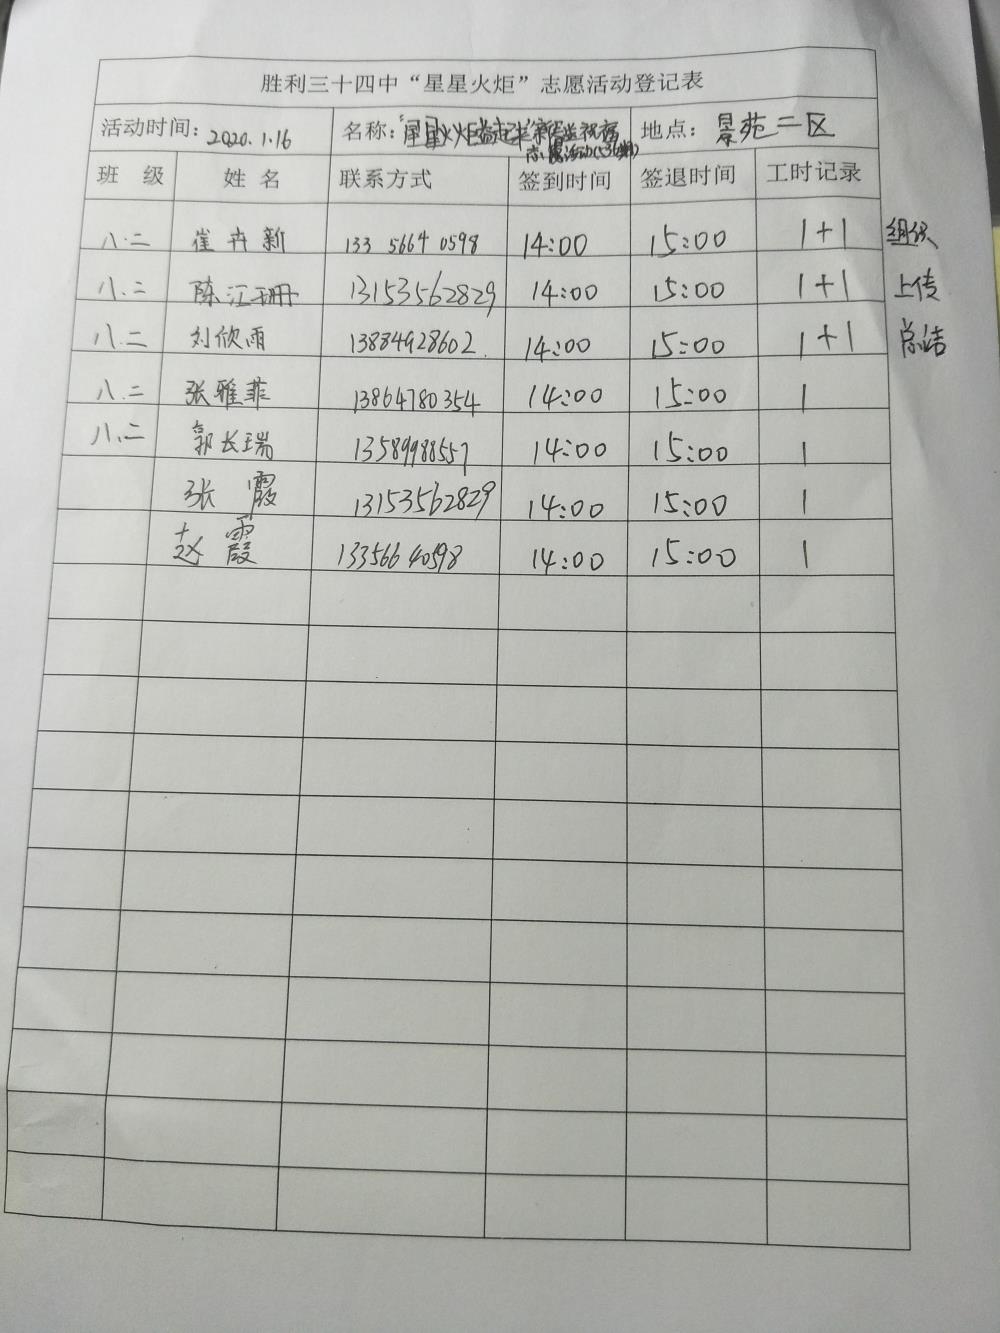 胜利三十四中“星星火炬”志愿活动登记表
活动时间：2020.1.16 名称：“星星火炬 地点：景苑二区
班 级 姓 名 联系方式 签到时间 签退时间 工时记录
八.二 崔卉新 133 5664 0598 14:00 15:00 1+1 组织
八.二 陈江珊 13153562829 14:00 15:00 1+1 上传
八.二 刘欣雨 13884928602. 14:00 15:00 1+1 总结
八.二 张雅菲 13864780354 14:00 15:00 1
八.二 郭长瑞 13589988557 14:00 15:00 1
张 霞 13153562829 14:00 15:00 1
赵 霞 13356640598 14:00 15:00 1